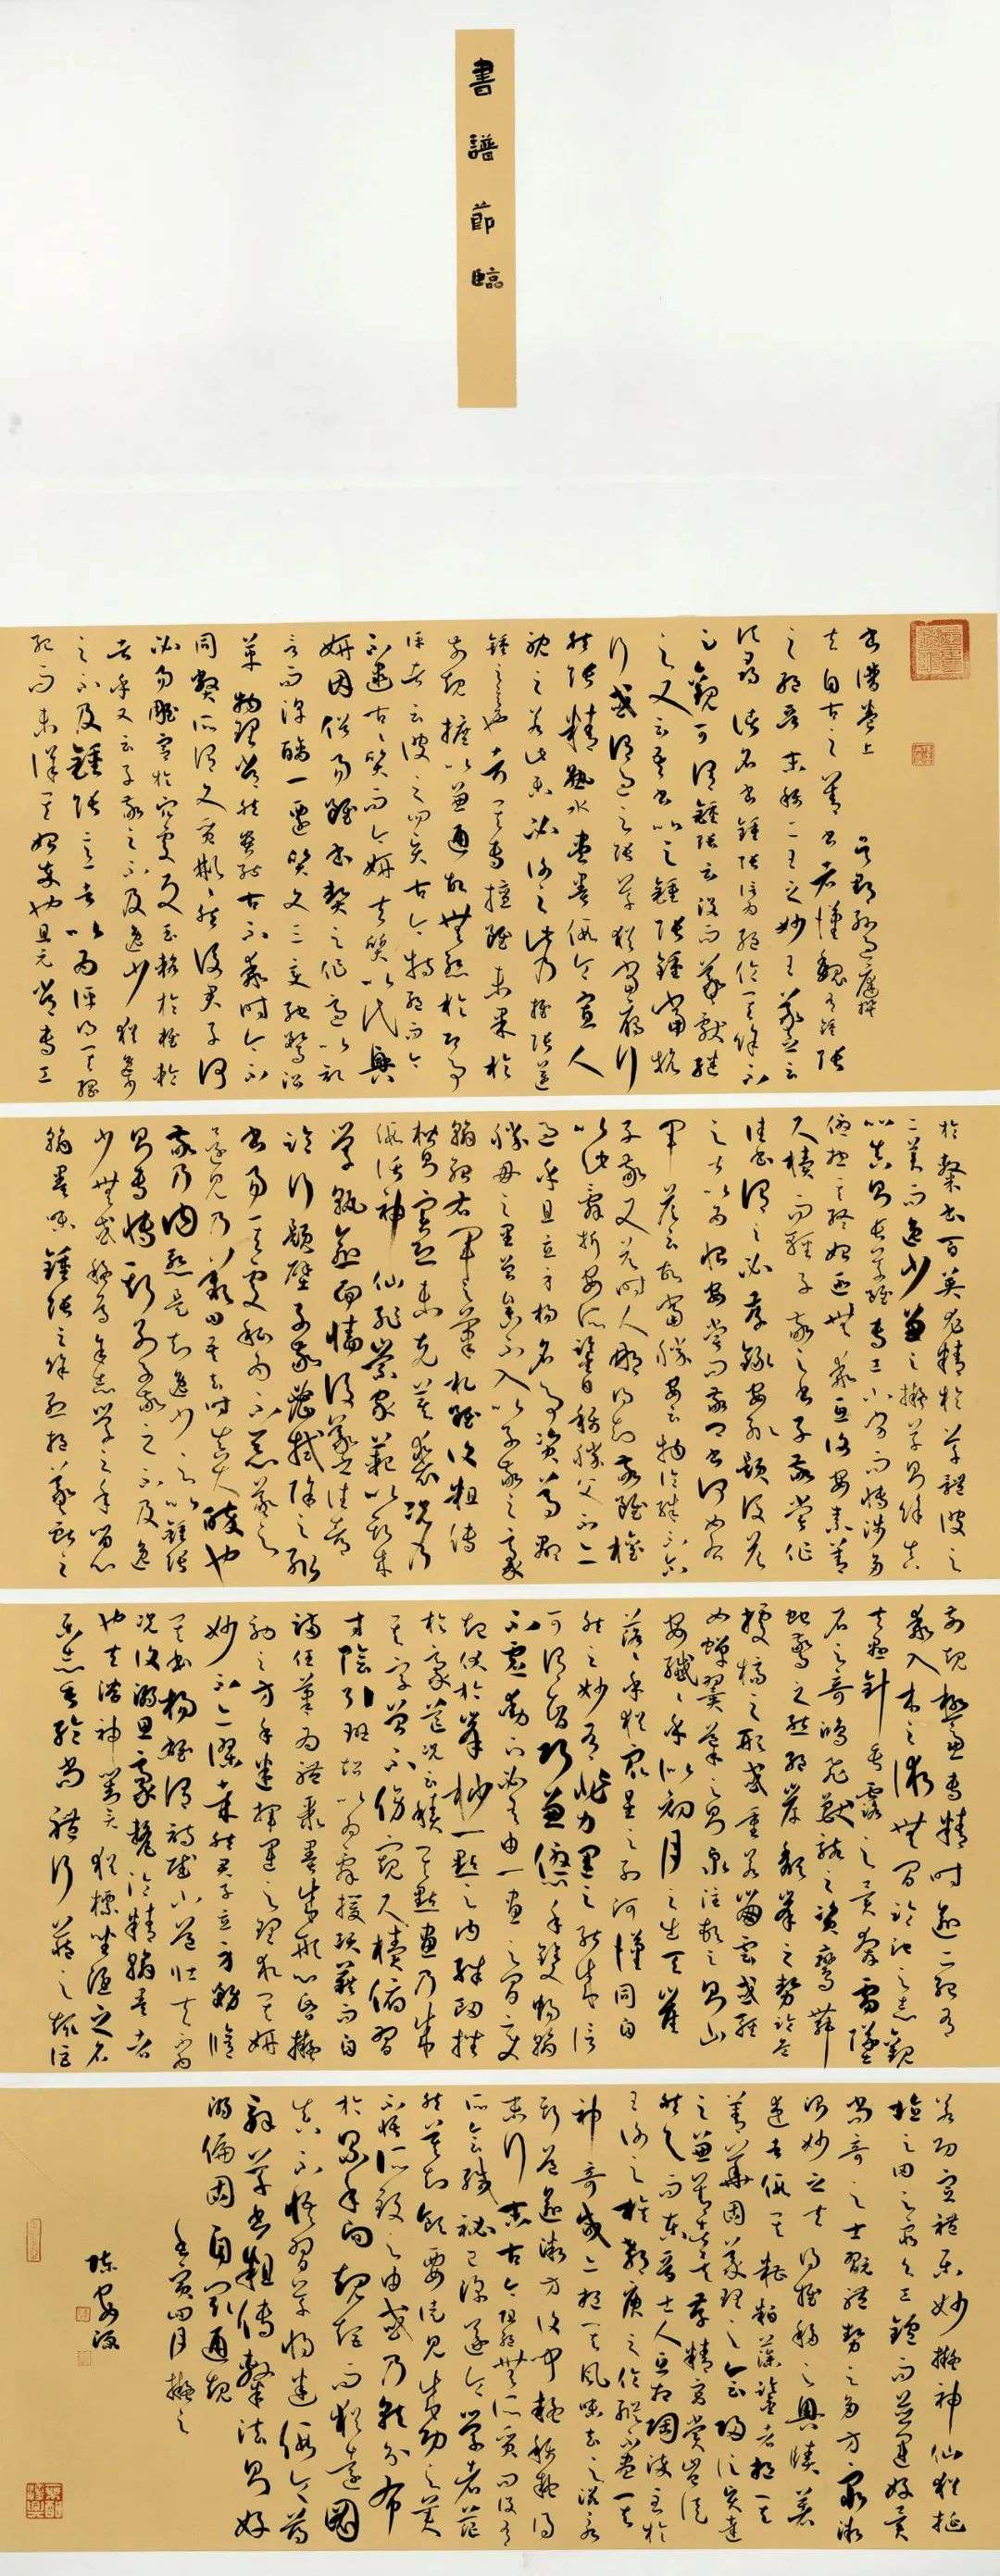 書譜節臨
書譜卷上 吳郡孫過庭撰
夫自古之善書者漢魏有鍾張
之絕晉末稱二王之妙王羲之云
頃尋諸名書鍾張信為絕倫其餘不
足觀可謂鍾張云沒而羲獻繼
之又云吾書比之鍾張鍾當抗
行或謂過之張草猶當雁行
然張精熟池水盡墨假令寡人
耽之若此未必謝之此乃推張邁
鍾之意也考其專擅雖未果於
前規摭以兼通故無慚於即事
評者云彼之四賢古今特絕而今
不逮古古質而今妍夫質以代興
妍因俗易雖書契之作適以記
言而淳醨一遷質文三變馳騖沿
革物理常然貴能古不乖時今不
同弊所謂文質彬彬然後君子何
必易雕宮於穴處反玉輅於椎輪
者乎又云子敬之不及逸少猶逸少
之不及鍾張意者以為評得其綱
紀而未詳其始卒也且元常專工
於隸書百英尤精於草體彼之
二美而逸少兼之擬草則餘真
比真則長草雖專工小劣而博涉多
優揔其終始匪無乖互謝安素善
尺牘而輕子敬之書子敬嘗作
佳書與之謂必存錄安輒題後答
之甚以為恨安嘗問敬卿書何如右
軍答云故當勝安云物論殊不爾
子敬又答時人那得知敬雖權
以此辭折安所鑒自稱勝父不亦
過乎且立身揚名事資尊顯
勝母之里曾參不入以子敬之豪
翰紹右軍之筆札雖復粗傳
楷則實恐未克箕裘況乃
假託神仙恥崇家範以斯成
學孰愈面牆後羲之往都
臨行題壁子敬密拭除之輒
書易其處私為不惡羲之
還見乃歎曰吾去時真大醉也
敬乃內慚是知逸少之比鍾張
則專博斯別子敬之不及逸
少無或疑焉余志學之年留心
翰墨味鍾張之餘烈挹羲獻之
前規極慮專精時逾二紀有
乖入木之術無間臨池之志觀
夫懸針垂露之異奔雷墜
石之奇鴻飛獸駭之資鸞舞
蛇驚之態絕岸頹峰之勢臨危
據槁之形或重若崩雲或輕
如蟬翼導之則泉注頓之則山
安纖纖乎似初月之出天崖
落落乎猶眾星之列河漢同自
然之妙有非力運之能成信
可謂智巧兼優心手雙暢翰
不虛動下必有由一畫之間變
起伏於峰杪一點之內殊衄挫
於豪芒況云積其點畫乃成
其字曾不傍窺尺牘俯習
寸陰引班超以為辭援項籍而自
滿任筆為體聚墨成形心昏擬
効之方手迷揮運之理求其妍
妙不亦謬哉然君子立身務脩
其本揚雄謂詩賦小道壯夫不為
況復溺思豪釐淪精翰墨者
也夫潛神對奕猶標坐隱之名
樂志垂綸尚體行藏之趣詎
若功宣禮樂妙擬神仙猶挻
埴之罔窮與工鑪而並運好異
尚奇之士翫體勢之多方窮微
測妙之夫得推移之奧賾著
述者假其糟粕藻鑒者挹其
菁華固義理之會歸信賢達
之兼善者矣存精寓賞豈徒
然歟而東晉士人互相陶淬至於
王謝之族郗庾之倫縱不盡其
神奇咸亦挹其風味去之滋永
斯道逾微方復聞疑稱疑得
末行末古今阻絕無所質問設有
所會緘秘已深遂令學者茫
然莫知領要徒見成功之美
不悟所致之由或乃就分布
於累年向規矩而猶遠圖
真不悟習草將迷假令薄
解草書粗傳隸法則好
溺偏固自閡通規
壬寅四月擬之